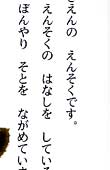 こえんの えんそくです。
えんそくの はなしを してい
ぼんやり そとを ながめていま